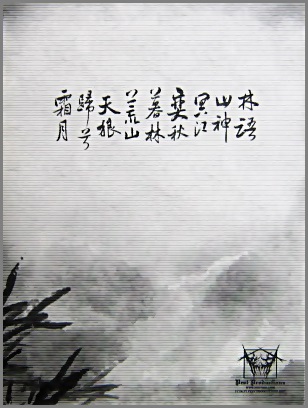 林語
山神
冥江
秋
暮林
荒山
天狼
歸兮
霜月
Pest Productions